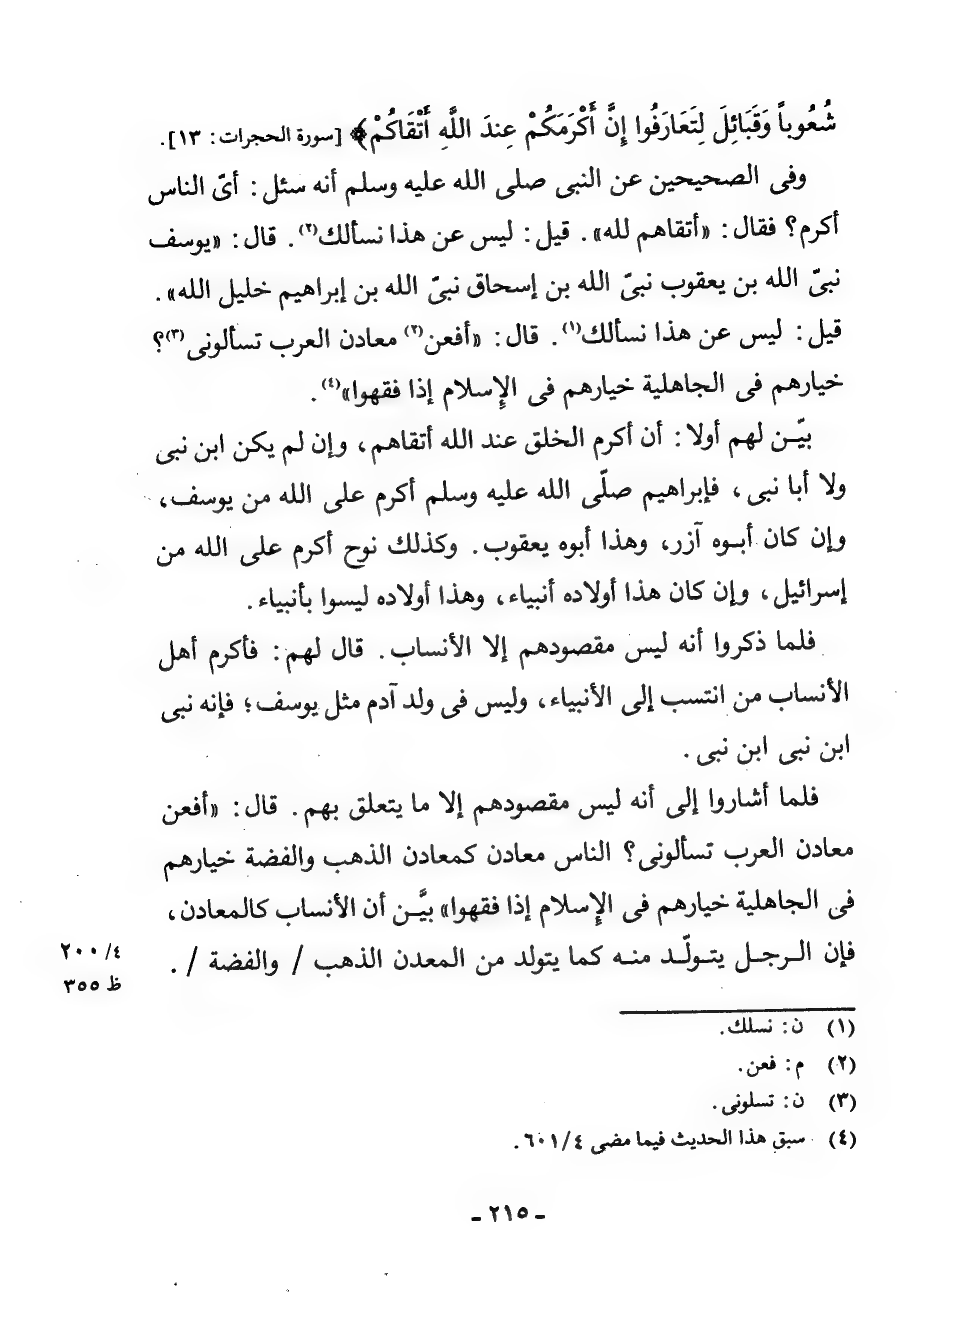 شُعُوباً وَقَبَائِلَ لِتَعَارَفُوا إِنَّ أَكْرَمَكُمْ عِندَ اللَّهِ أَتْقَاكُمْ﴾ [سورة الحجرات: ١٣].
وفى الصحيحين عن النبى صلى الله عليه وسلم أنه سئل: أىّ الناس
أكرم؟ فقال: «أتقاهم لله». قيل: ليس عن هذا نسألك(٢). قال: «يوسف
نبىّ الله بن يعقوب نبىّ الله بن إسحاق نبىّ الله بن إبراهيم خليل الله».
قيل: ليس عن هذا نسألك(١). قال: «أفعن(٢) معادن العرب تسألونى(٣)؟
خيارهم فى الجاهلية خيارهم فى الإسلام إذا فقهوا»(٤).
بيّـن لهم أولا: أن أكرم الخلق عند الله أتقاهم، وإن لم يكن ابن نبى
ولا أبا نبى، فإبراهيم صلّى الله عليه وسلم أكرم على الله من يوسف،
وإن كان أبـوه آزر، وهذا أبوه يعقوب. وكذلك نوح أكرم على الله من
إسرائيل، وإن كان هذا أولاده أنبياء، وهذا أولاده ليسوا بأنبياء.
فلما ذكروا أنه ليس مقصودهم إلا الأنساب. قال لهم: فأكرم أهل
الأنساب من انتسب إلى الأنبياء، وليس فى ولد آدم مثل يوسف؛ فإنه نبى
ابن نبى ابن نبى.
فلما أشاروا إلى أنه ليس مقصودهم إلا ما يتعلق بهم. قال: «أفعن
معادن العرب تسألونى؟ الناس معادن كمعادن الذهب والفضة خيارهم
فى الجاهلية خيارهم فى الإسلام إذا فقهوا» بيَّـن أن الأنساب كالمعادن،
فإن الـرجـل يتـولّـد منـه كما يتولد من المعدن الذهب / والفضة /.
٤/ ٢٠٠
ظ ٣٥٥
(١) ن: نسلك.
(٢) م: فعن.
(٣) ن: تسلونى.
(٤) سبق هذا الحديث فيما مضى ٦٠١/٤.
ـ ٢١٥ ـ